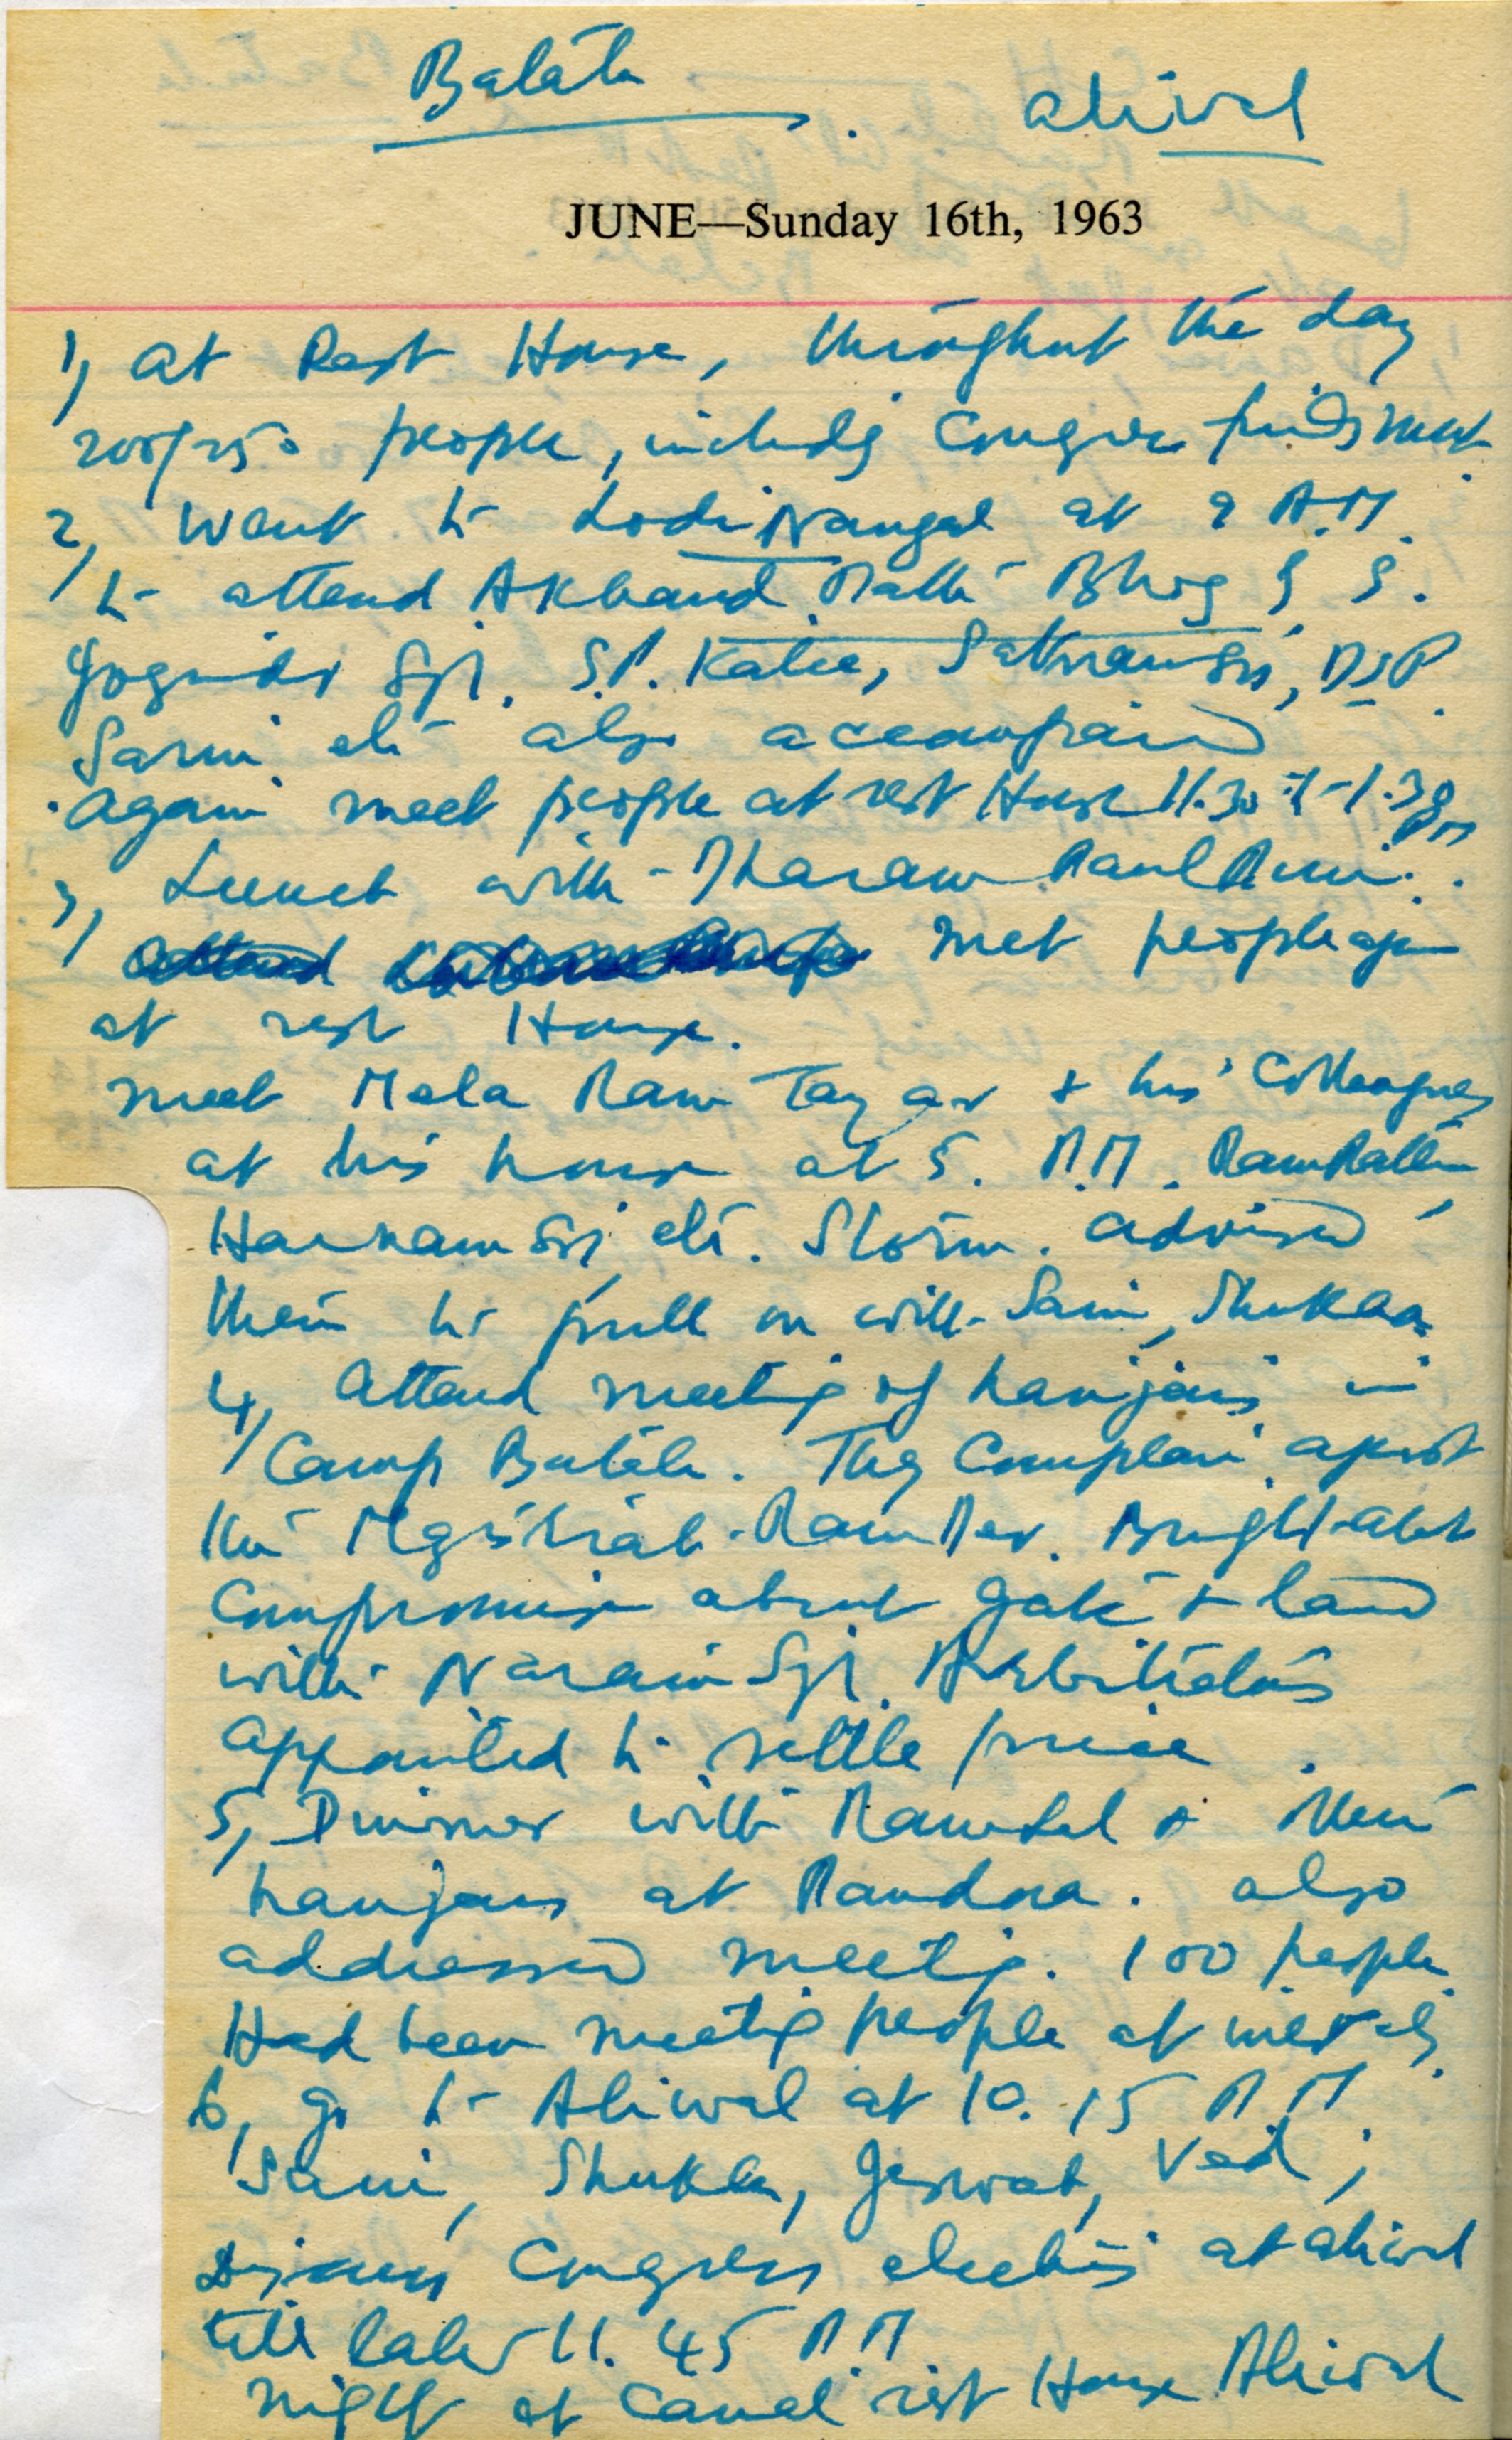 Batala . Aliwal
JUNE—Sunday 16th, 1963
1, At Rest House, throughout the day
200/250 people, including Congress friends met
2, Went to Lodi Nangal at 9 A.M.
to attend Akhand Path Bhog of S.
Joginder Sgh. S.P. Kalie, Satnam Sgh, DSP
Saini etc also accompanied
Again meet people at rest House 11.30 to 1.30 PM
3, Lunch with Dharam Paul Puri.
met people again
at rest House.
meet Mela Ram Tayar & his Colleagues
at his house at 5. P.M. Ram Rattan
Harnam Sgh etc. Storm. advised
them to pull on with Saini, Shukla.
4, Attend meeting of harijans in
Camp Batala. They Complain against
the Magistrate Ram Dev. Brought about
Compromise about gate & land
with Narain Sgh. Arbitrators
appointed to settle price.
5, Dinner with Ram Lal & other
harijans at Pandora. also
addressed meeting. 100 people
Had been meeting people at intervals
6, go to Aliwal at 10.15 P.M.
Saini, Shukla, Jeswat, Ved,
Discuss Congress elections at Aliwal
till late 11.45 P.M.
night at Canal rest House Aliwal